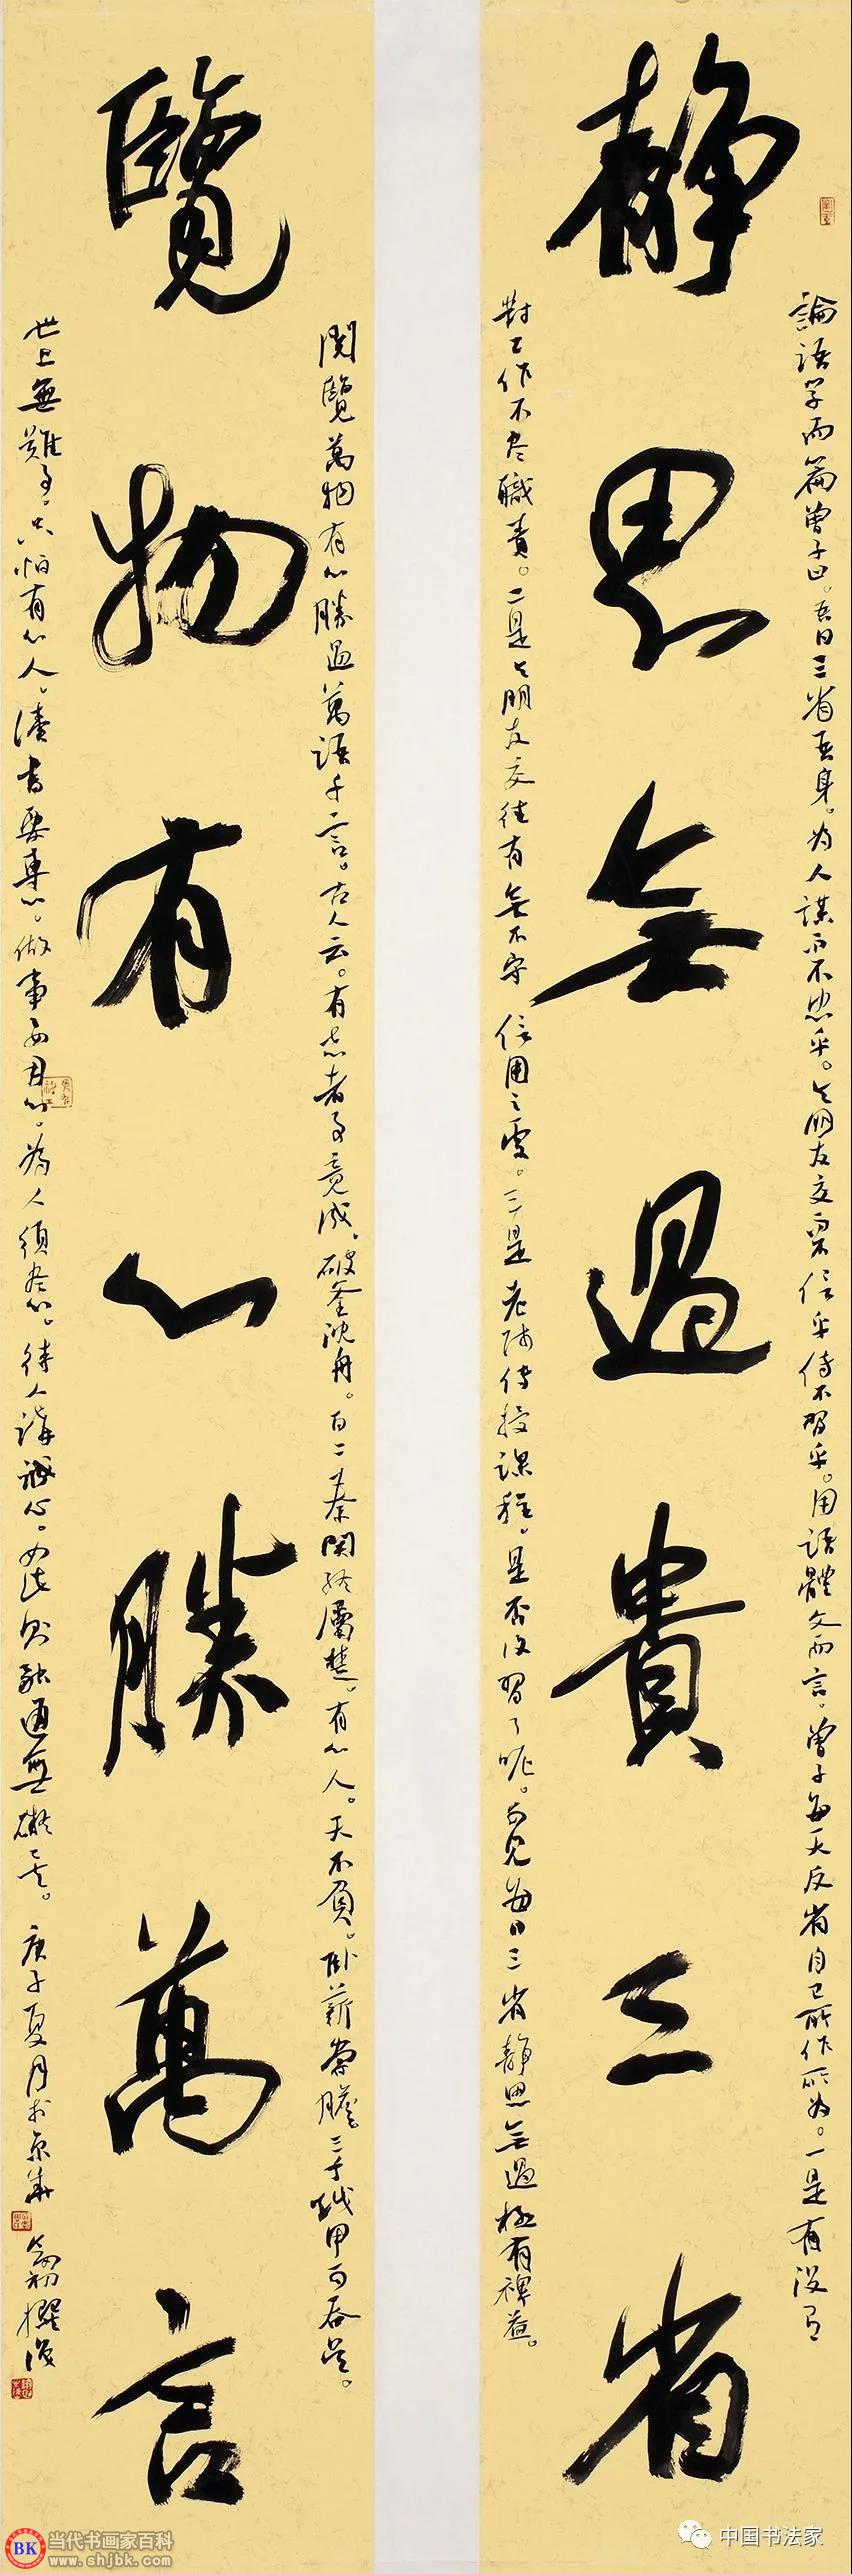 靜思無過貴三省
論語學而篇曾子曰。吾日三省吾身。為人謀而不忠乎。與朋友交而不信乎傳不習乎。用語體文而言。曾子每天反省自己所作所為。一是有沒有
對工作不盡職責。二是與朋友交往有無不守信用之處。三是老師傳授課程。是否復習了呢。可見每日三省靜思無過極有裨益。
覽物有心勝萬言
閱覽萬物有心勝過萬語千言。古人云。有志者事竟成。破釜沈舟。百二秦關終屬楚。有心人。天不負。臥薪嘗膽。三千越甲可吞吳。
世上無難事。只怕有心人。讀書要專心。做事要用心。為人須盡心。待人講誠心。如此則融通無礙矣。庚子夏月於京華 撰後
BK 当代书画家百科
www.shjbk.com
中国书法家